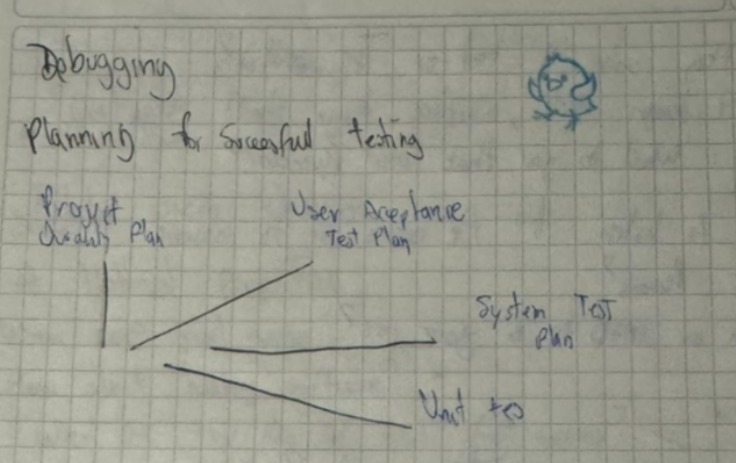 Debugging
Planning for Successful testing
Proyect
Quality Plan
User Aceptance
Test Plan
System Test
Plan
Unit tes